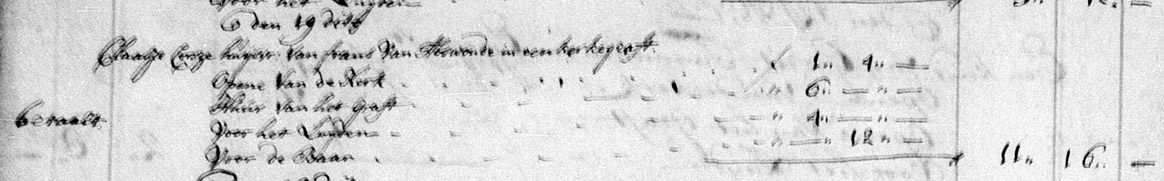 voor het Luyden
6 den 19 dito
Claasje huysvr: van frans van in een kerkegraft.
opene van de Kerk 1„ 4„ —
Huur van het Graft 6„ — „ —
betaalt
voor het Luyden 4„ — „ —
voor de Baar „ 12 „ — 11„ 16„ —